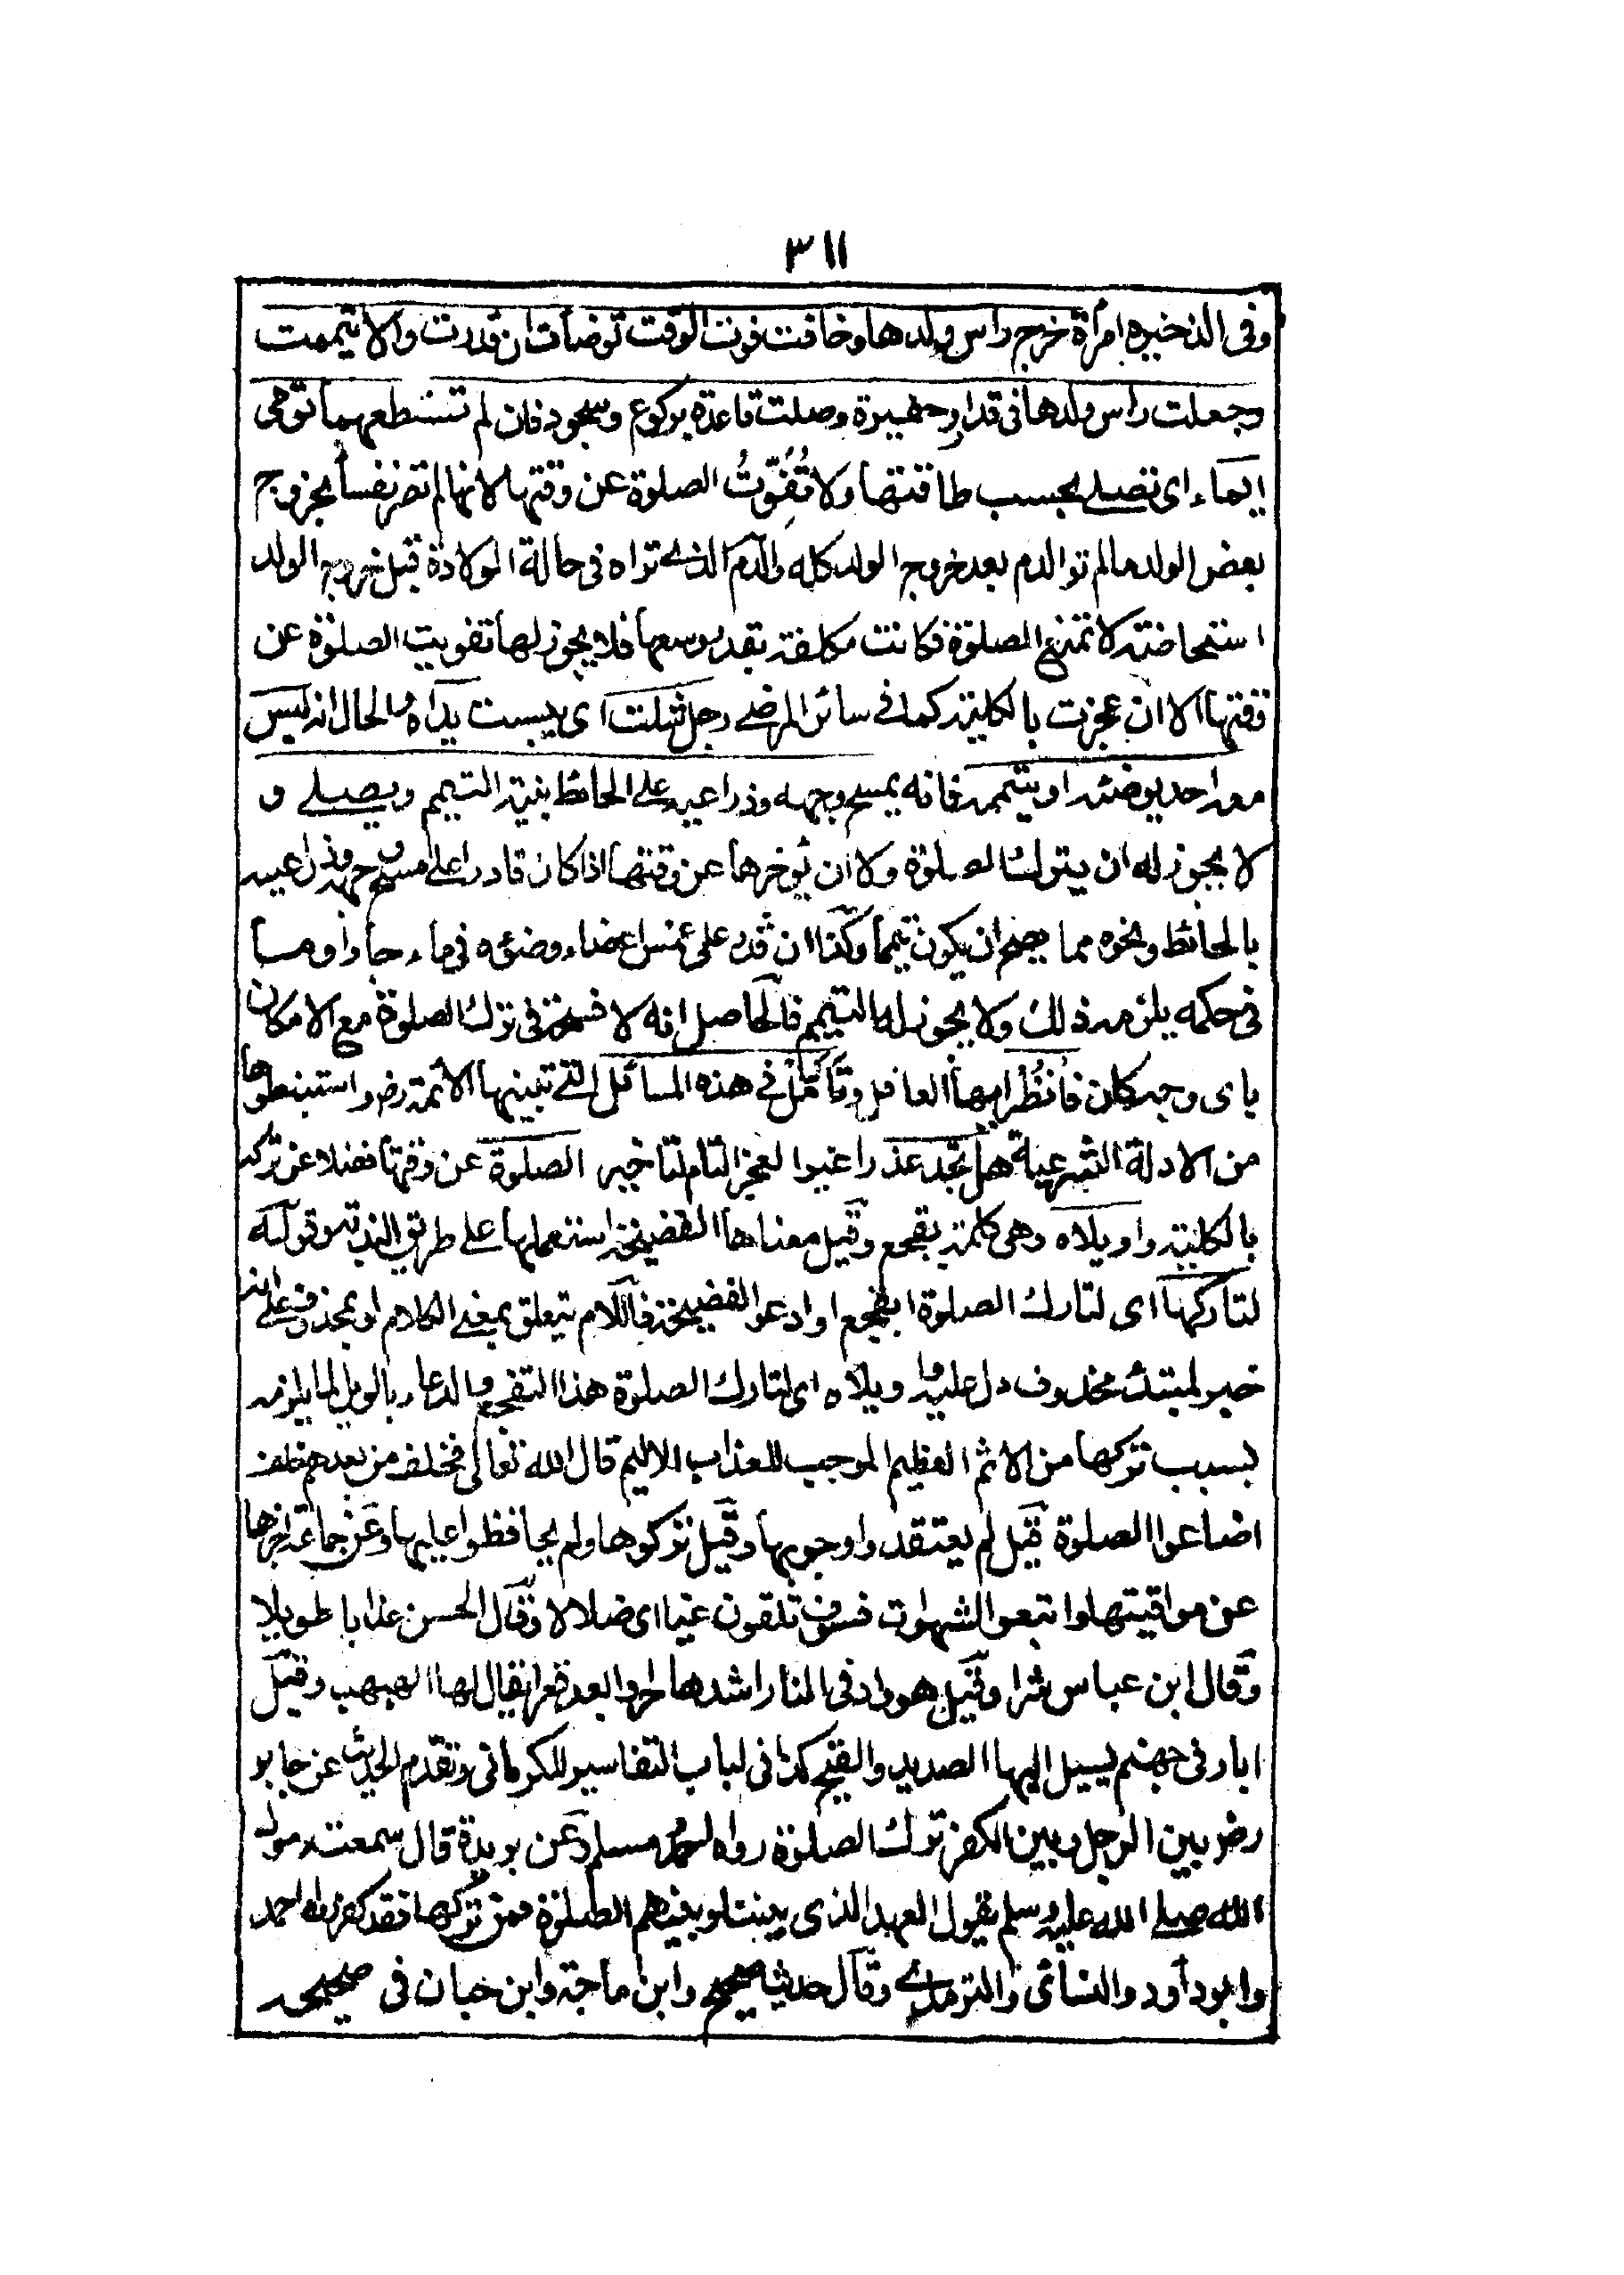 ٣١١
وفى الذخيره امرأة خرج راس ولدها وخافت فوت الوقت توضأت ان قدرت والا تيممت
وجعلت راس ولدها فى قدر او حفيرة وصلت قاعدة بركوع وسجود فان لم تستطعهما تومى
ايماء اى تصلے بحسب طاقتها ولا تُفُوّتُ الصلوة عن وقتها لانها لم تصر نفسأ بخروج
بعض الولد مالم تر الدم بعد خروج الولد كله والدم الذے تراه فى حالة الولادة قبل خروج الولد
استحاضة لا تمنع الصلوة فكانت مكلفة بقدر وسعها فلا يجوز لها تفويت الصلوة عن
وقتها الا ان عجزت بالكلية كما فى سائر المرضے رجل شلت اى يبست يداه والحال انه ليس
معه احد يوضئه او ييممه فانه يمسح وجهه وذراعيه على الحائط بنية التيمم ويصلے و
لا يجوز له ان يترك الصلوة ولا ان يؤخرها عن وقتها اذا كان قادرا على مسح وجهه وذراعيه
بالحائط ونحوه مما يصح ان يكون تيمما وكذا ان قدر على غمس اعضاء وضوئه فى ماء جار او ما
فى حكمه يلزمه ذلك ولا يجوز له التيمم فالحاصل انه لا فسحة فى ترك الصلوة مع الامكان
باى وجه كان فانظر ايها العاقل وتأمل فى هذه المسائل التے تبينها الائمة رضـ واستنبطوها
من الادلة الشرعية هل تجد عذرا غير العجز التام لتاخير الصلوة عن وقتها فضلا عن تركه
بالكلية واويلاه وهى كلمة تفجع وقيل معناها الفضيحة استعملها على طريق الندبة وقوله
لتاركها اى لتارك الصلوة اتفجع او ادعو الفضيحة فاللام تتعلق بمعنے الكلام او بمحذوف على انه
خبر لمبتدأ محذوف دل عليه واويلاه اى لتارك الصلوة هذا التفجع والدعاء بالويل لما يلزمه
بسبب تركها من الاثم العظيم الموجب للعذاب الاليم قال الله تعالى فخلف من بعدهم خلف
اضاعوا الصلوة قيل لم يعتقدوا وجوبها وقيل تركوها ولم يحافظوا عليها وعن جماعة اخرها
عن مواقيتها واتبعوا الشهوات فسوف تلقون غيا اى ضلالا وقال الحسن عذابا طويلا
وقال ابن عباس شرا وقيل هو واد فى النار اشدها حرا وابعدها قعرا يقال لها الهبهب وقيل
ابار فى جهنم يسيل اليها الصديد والقيح كذا فى لباب التفاسير للكرمانى وتقدم الحديث عن جابر
رضـ بين الرجل وبين الكفر ترك الصلوة رواه احمد ومسلم وعن بريدة قال سمعت رسول
الله صلے الله عليه وسلم يقول العهد الذى بيننا وبينهم الصلوة فمن تركها فقد كفر رواه احمد
وابو داود والنسائى والترمذے وقال حديث صحيح وابن ماجة وابن حبان فى صحيحه